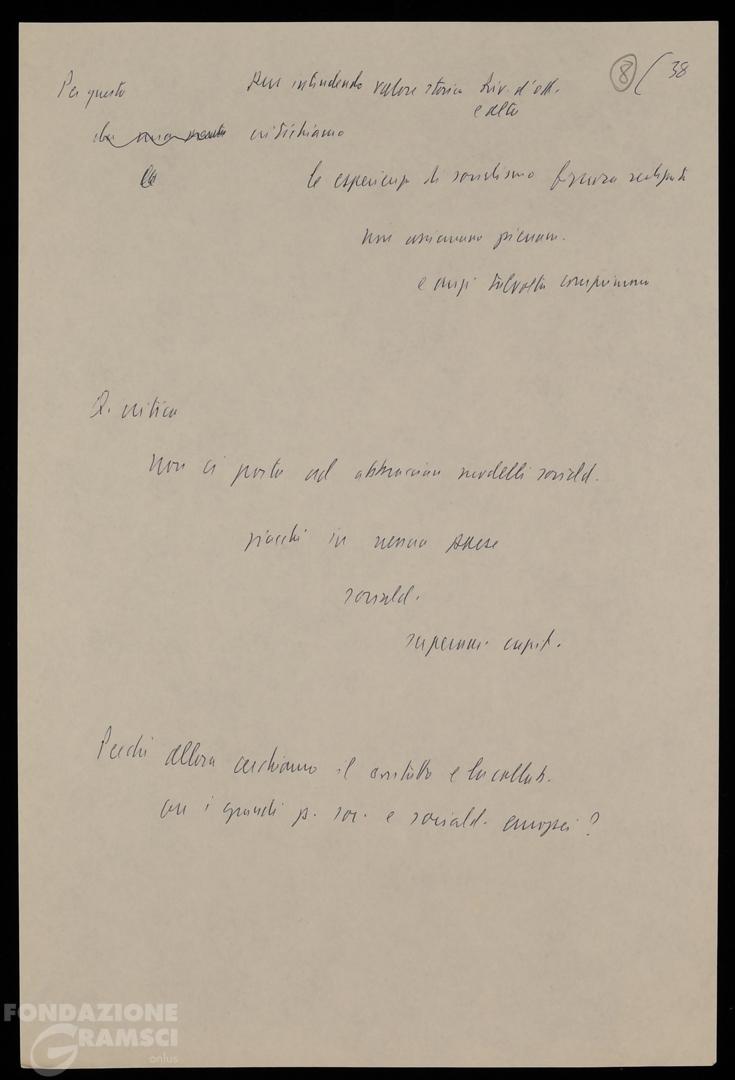 8 / 38
Per questo pur intendendo valore storico Riv. d'ott.
e altre
critichiamo
le esperienze di socialismo finora realizzate
non assicurano pienam.
e anzi talvolta comprimono
Q. critica
Non ci porta ad abbracciare modelli sociald.
giacché in nessun paese
sociald.
superam. capit.
Perché allora cerchiamo il contatto e la collab.
con i grandi p. soc. e sociald. europei?
FONDAZIONE
GRAMSCI
onlus